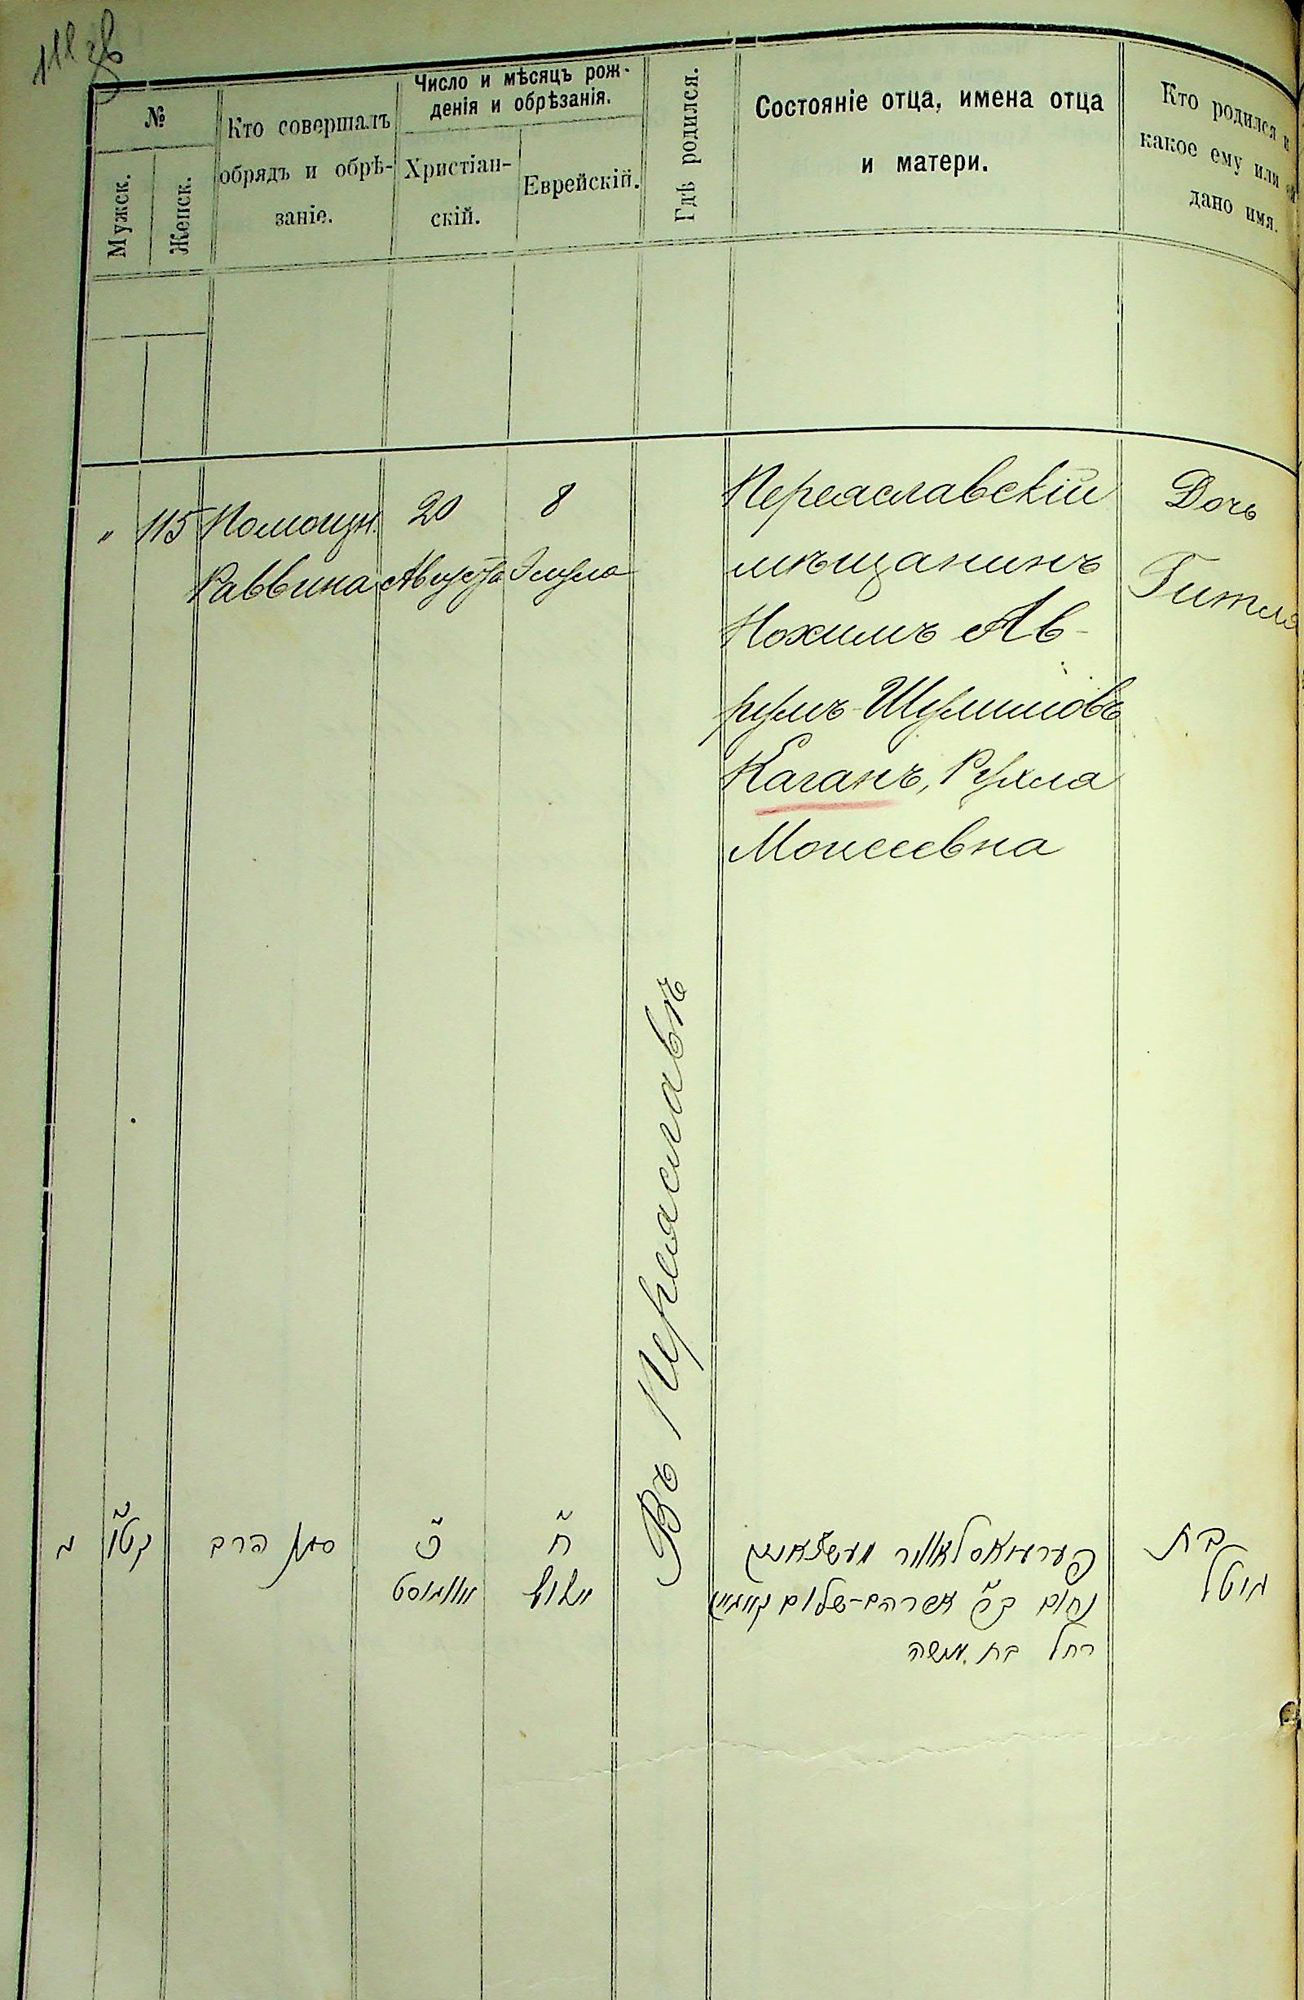 118 об
№
Мужск.
Женск.
Кто совершалъ
обрядъ и обрѣ-
заніе.
Число и мѣсяцъ рож-
денія и обрѣзанія.
Христіан-
скій.
Еврейскій.
Гдѣ родился.
Состояніе отца, имена отца
и матери.
Кто родился и
какое ему или ей
дано имя.
" 115
Помощн.
Раввина
20
Августа
8
Элула
Въ Переяславѣ
Переяславскій
мѣщанинъ
Нохимъ Ав-
румъ-Шулимовъ
Каганъ, Рухля
Моисеевна
Дочь
Гитля
קט"ו
סגן הרב
כ'
אווגוסט
ח'
אלול
נחום ב"ר אברהם-שלום
רחל בת משה
בת
גיטל